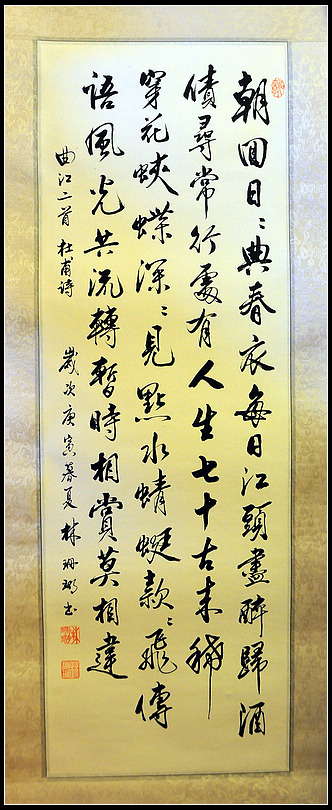 朝回日〻典春衣每日江頭盡醉歸酒
債尋常行處有人生七十古来稀
穿花蛺蝶深〻見點水蜻蜓款〻飛傳
語風光共流轉暫時相賞莫相違
曲江二首 杜甫诗 歲次庚寅暮夏 林珊书